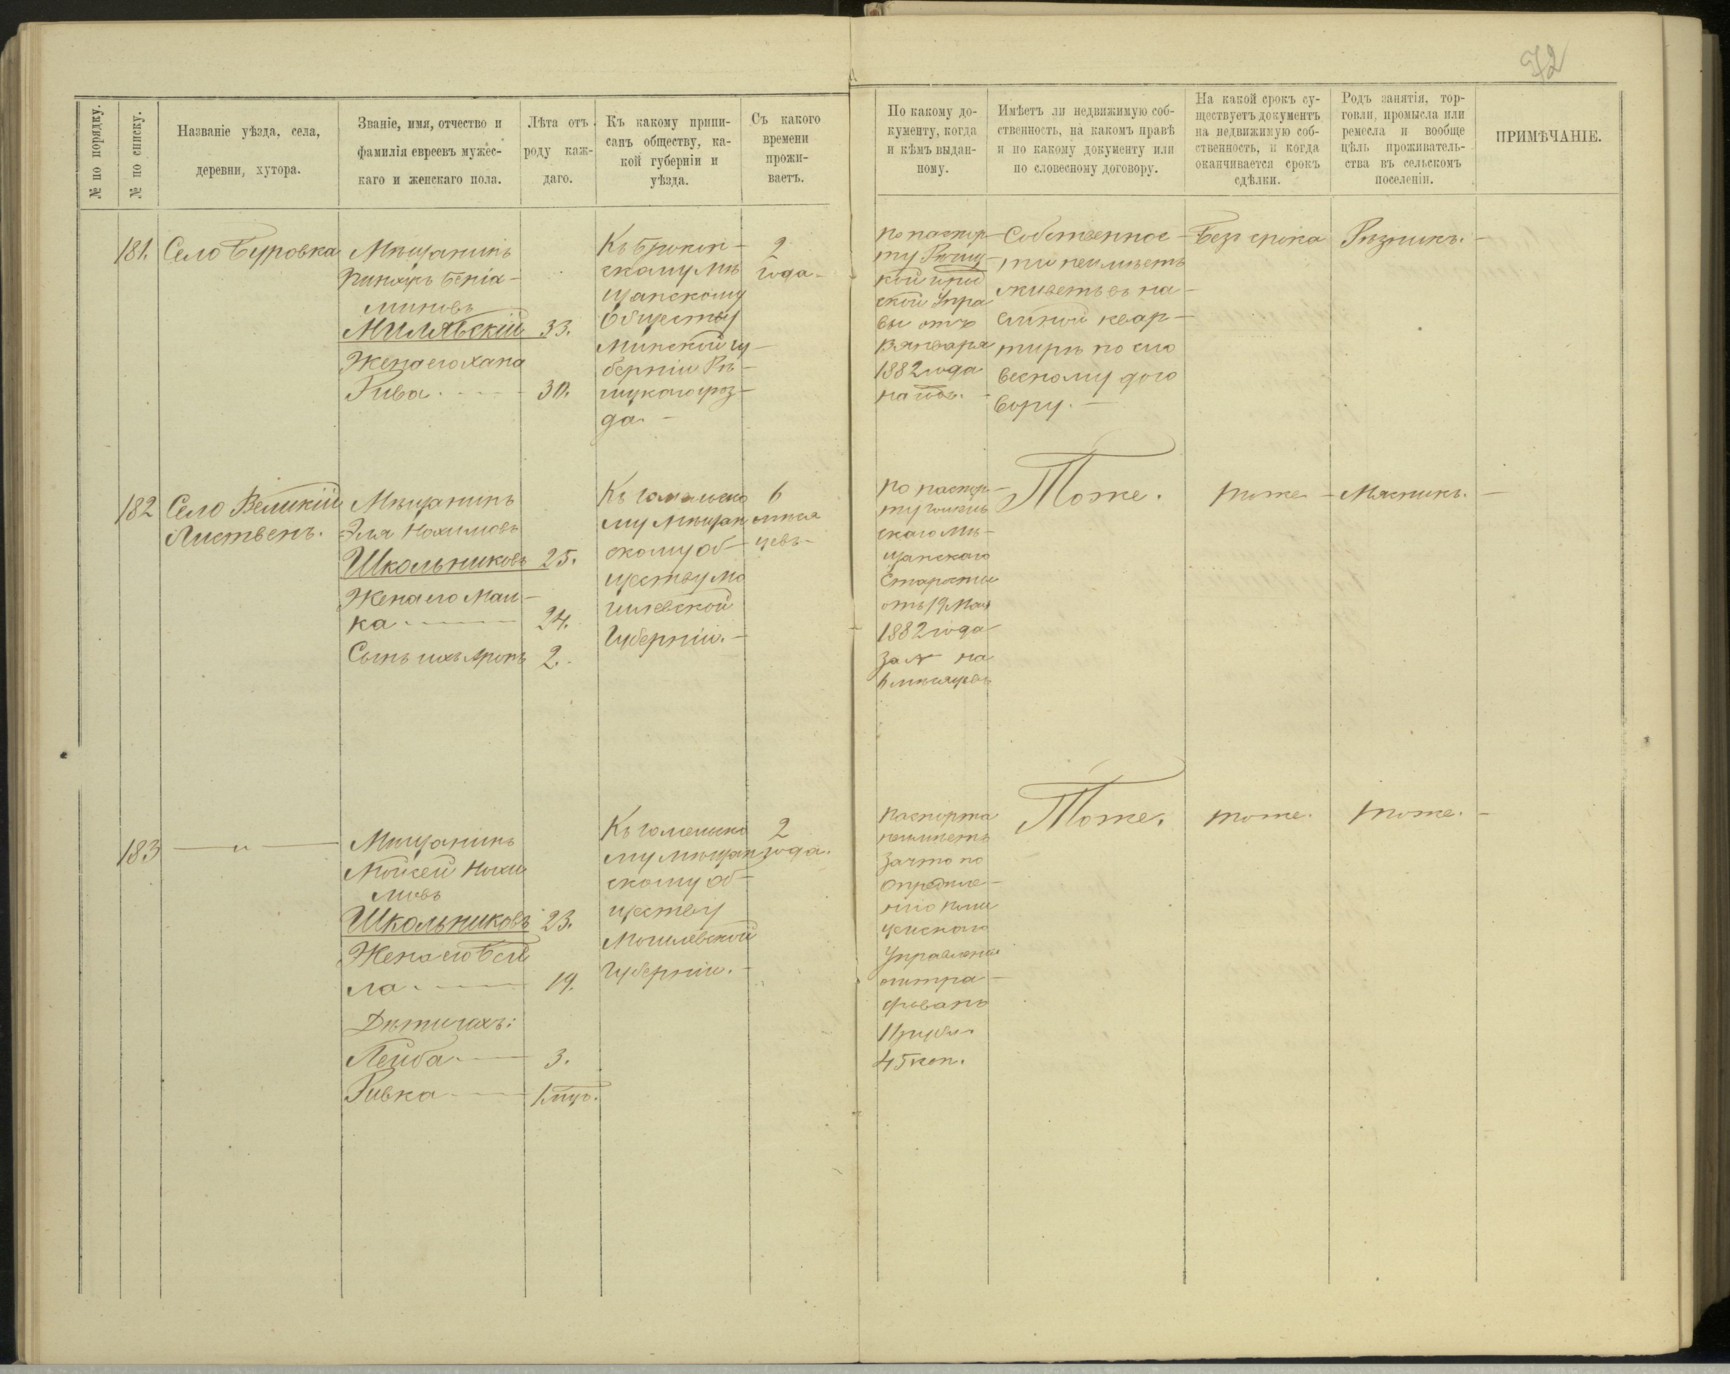 72
№ по порядку.
№ по списку.
Названіе уѣзда, села,
деревни, хутора.
Званіе, имя, отчество и
фамилія евреевъ мужес-
каго и женскаго пола.
Лѣта отъ
роду каж-
даго.
Къ какому припи-
санъ обществу, ка-
кой губерніи и
уѣзда.
Съ какого
времени
прожи-
ваетъ.
По какому до-
кументу, когда
и кѣмъ выдан-
ному.
Имѣетъ ли недвижимую соб-
ственность, на какомъ правѣ
и по какому документу или
по словесному договору.
На какой срокъ су-
ществуетъ документъ
на недвижимую соб-
ственность, и когда
оканчивается срокъ
сдѣлки.
Родъ занятія, тор-
говли, промысла или
ремесла и вообще
цѣль проживатель-
ства въ сельскомъ
поселеніи.
ПРИМѢЧАНІЕ.
181.
Село Буровка
Мѣщанинъ
Пинхусъ Беніа-
миновъ
Милявскій 33.
Жена его Хана
Рива. 30.
скому Мѣ
щанскому
Обществу
Минской гу-
берніи Рѣ-
чицкаго уѣз-
да.
2
года.
По паспор-
ту Рѣчиц-
кой Город
ской Упра
вы отъ
13 января
1882 года
на годъ.
Собственнос-
ти неимѣетъ
живетъ въ на-
емной квар-
тирѣ по сло
весному дого
вору.
Безъ срока
Рѣзникъ.
182
Село Великій
Листвень.
Мѣщанинъ
Эля Нохимовъ
Школьниковъ 25.
Жена его Мал-
ка 24.
Сынъ ихъ Аронъ 2.
Къ Гомельско
му Мѣщан
скому об-
ществу Мо
гилевской
Губерніи.
6
мѣся
цевъ
По паспор-
ту Гомель
скаго Мѣ-
щанскаго
Старосты
отъ 19 Мая
1882 года
за № на
6 мѣсяцевъ
Тоже.
тоже
Мясникъ.
183
"
Мѣщанинъ
Мойсей Нохи
мовъ
Школьниковъ 23.
Жена его Бей
ла 19.
Дѣти ихъ:
Лейба 3.
Ривка 1/2 год.
Къ Гомельско
му Мѣщан
скому об-
ществу
Могилевской
Губерніи.
2
года.
Паспорта
неимѣетъ
за что по
опредѣле-
нію Поли
цейскаго
Управленія
оштра-
фованъ
45 коп.
Тоже.
тоже.
тоже.